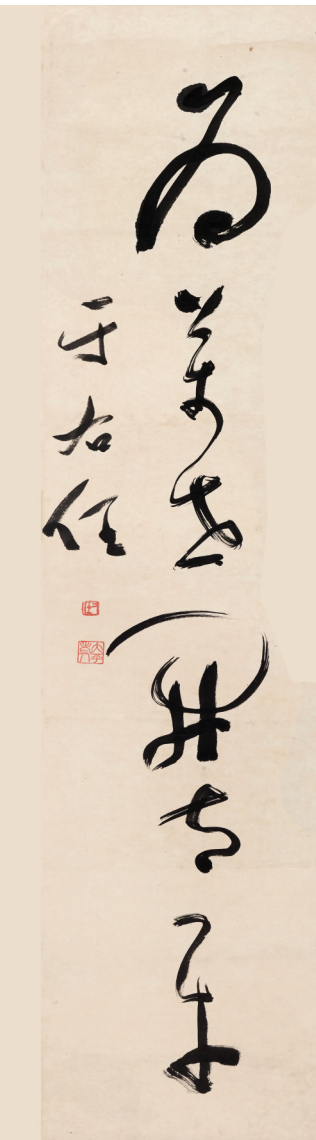 為萬世開太平
于右任